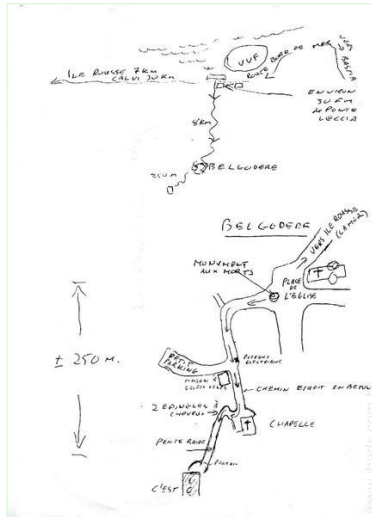 ILE ROUSSE 7KM
CALVI 30KM
UVF
ROUTE BORD DE MER
VERS
BASTIA
ENVIRON
30 KM
de PONTE
LECCIA
8KM
BELGODERE
250 M
BELGODERE
VERS ILE ROUSSE
(LA MER)
MONUMENT
AUX MORTS
PLACE
DE
L'EGLISE
± 250 M.
PETIT
PARKING
POTEAU
ELECTRIQUE
MAISON A
VOLETS
CHEMIN ETROIT EN BETON
2 EPINGLES À
CHEVEUX
CHAPELLE
PENTE RAIDE
C'EST
ICI
www.ihade.com